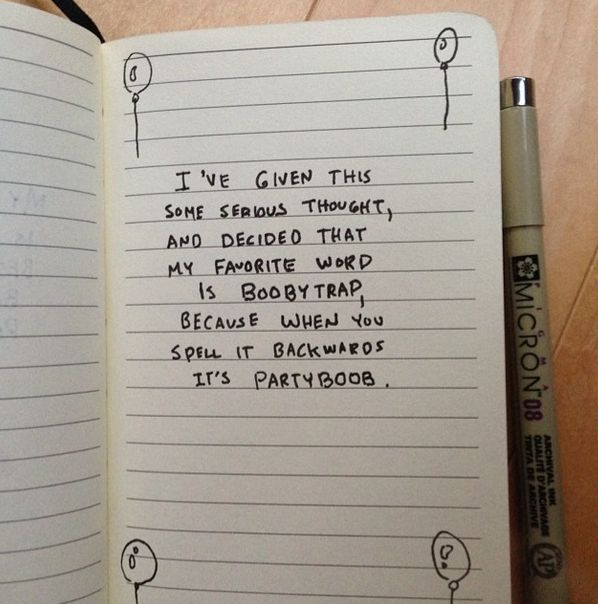 I'VE GIVEN THIS
SOME SERIOUS THOUGHT,
AND DECIDED THAT
MY FAVORITE WORD
IS BOOBYTRAP,
BECAUSE WHEN YOU
SPELL IT BACKWARDS
IT'S PARTYBOOB.
SIGMA
MICRON 08
ARCHIVAL INK
QUALITÉ D'ARCHIVAGE
TINTA DE ARCHIVE
AP